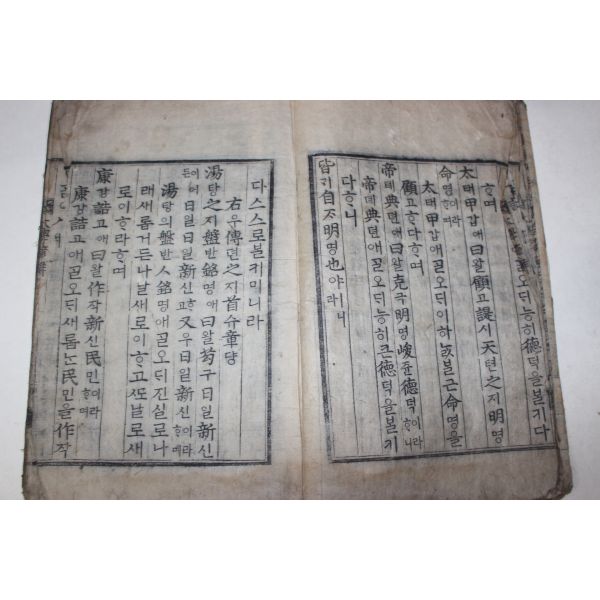 ᄀᆞᆯ오ᄃᆡ능히德덕을ᄇᆞᆯ키다
ᄒᆞ며
太태甲갑애曰왈顧고諟시天텬之지明명
命명이라ᄒᆞ며
太태甲갑애ᄀᆞᆯ오ᄃᆡ이하ᄂᆞᆯᄇᆞᆯᄀᆞᆫ命명을
顧고ᄒᆞ다ᄒᆞ며
帝뎨典뎐애曰왈克극明명峻쥰德덕이라ᄒᆞ니
帝뎨典뎐애ᄀᆞᆯ오ᄃᆡ능히큰德덕을ᄇᆞᆯ키
다ᄒᆞ니
皆ᄀᆡ自ᄌᆞ明명也야ㅣ니라
다스스로ᄇᆞᆯ키미니라
右우傳뎐之지首슈章쟝
湯탕之지盤반銘명애曰왈茍구日일新신
이어든日일日일新신ᄒᆞ고又우日일新신이라ᄒᆞ며
湯탕의盤반ㅅ銘명애ᄀᆞᆯ오ᄃᆡ진실로나
래새롭거든나날새로이ᄒᆞ고ᄯᅩ날로새
로이ᄒᆞ라ᄒᆞ며
康강誥고애曰왈作작新신民민이라ᄒᆞ며
康강誥고애ᄀᆞᆯ오ᄃᆡ새롭ᄂᆞᆫ民민을作작